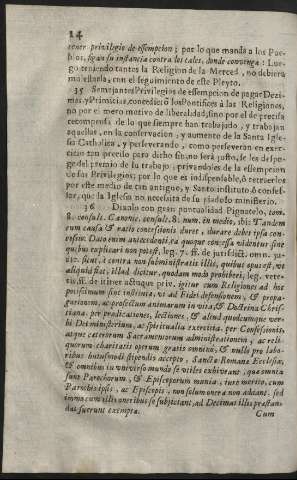 14
tener privilegio de essempcion; por lo que manda a los Pue-
blos, sigan su instancia contra los tales, donde convenga: Lue-
go teniendo tantos la Religion de la Merced, no debiera
malestarla, con el seguimiento de este Pleyto.
35 Semejantes Privilegios de essempcion de pagar Dezi-
mas, y Primicias, conceden los Pontifices à las Religiones,
no por el mero motivo de liberalidad; sino por el de precisa
recompensa de lo que siempre han trabajado, y trabajan
aquellas, en la conservacion, y aumento de la Santa Igle-
sia Catholica, y perseverando, como perseveran en exer-
cicio tan preciso para dicho fin, no serà justo, se les despo-
je del premio de su trabajo, privandoles de la essempcion
de sus Privilegios; por lo que es indispensable, ò retraerlos
por este medio de tan antiguo, y Santo instituto, ò confes-
sar, que la Iglesia no necessita de su piadoso ministerio.
36 Dixolo con gran puntualidad Pignatelo, tom.
8. consult. Canonic. consult. 8. num. in medio, ibi: Tandem
cum causa & ratio concessionis duret, durare debet ipsa con-
cessio. Dato enim antecedenti, ea quoque concessa videntur sine
quibus explicari non potest, leg. 2. ff. de jurisdict. omn. ju-
dic. sicut, è contra non subministratis illis, quibus opus est, ut
aliquid fiat, illud dicitur, quodam modo prohiberi, leg. vete-
ris, ff. de itiner actuque priv. igitur cum Religiones ad hoc
potissimum sint institutæ, ut ad Fidei defensionem, & propa-
gationem, ac profectum animarum in vita, & Doctrina Chris-
tiana, per prædicationes, lectiones, & aliud quodcumque ver-
bi Dei ministerium, ac spiritualia exercitia, per Confessionis,
atque cæterorum Sacramentorum administrationem, ac reli-
quorum charitatis operum gratis omnino, & nullo pro labo-
ribus hutusmodi stipendio accepto, Sanctæ Romanæ Ecclesiæ,
& omnibus in universo mundo se utiles exhibeant, quæ omnia
sunt Parochorum, & Episcoporum munia, jure merito, cum
Parochis ipsis, ac Episcopis, non solum onera non adeant, sed
immo cum illis oneribus se subjiciant, ad Decimas illis præstan-
das fuerunt exempta. Cum